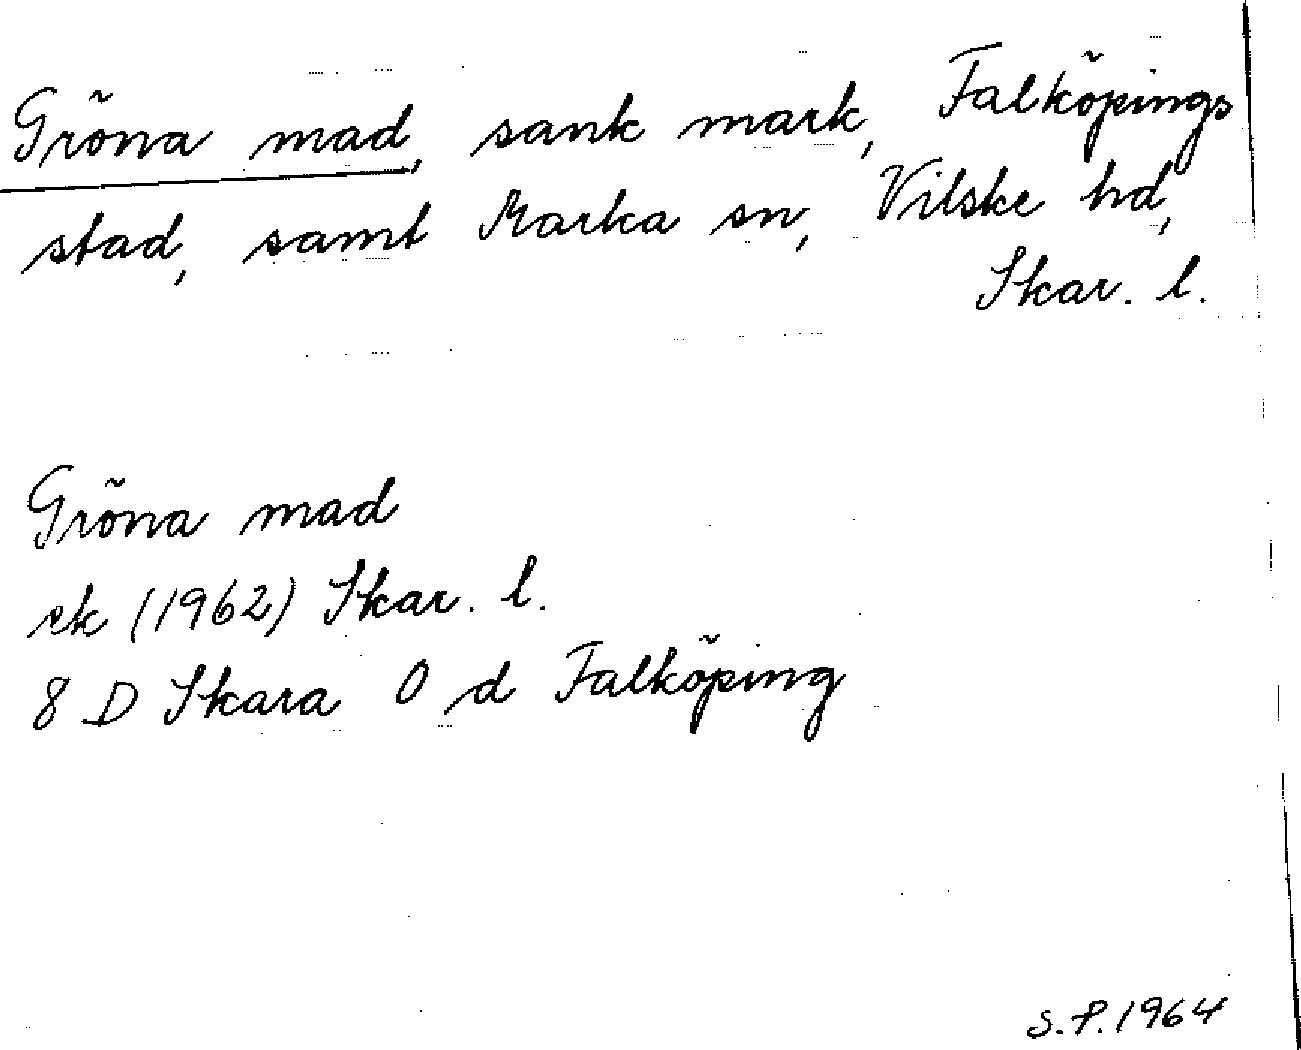 Gröna mad, sank mark, Falköpings
stad, samt Marka sn, Vilske hd,
Skar. l.
Gröna mad
ek (1962) Skar. l.
8 D Skara 0 d Falköping
S.P. 1964